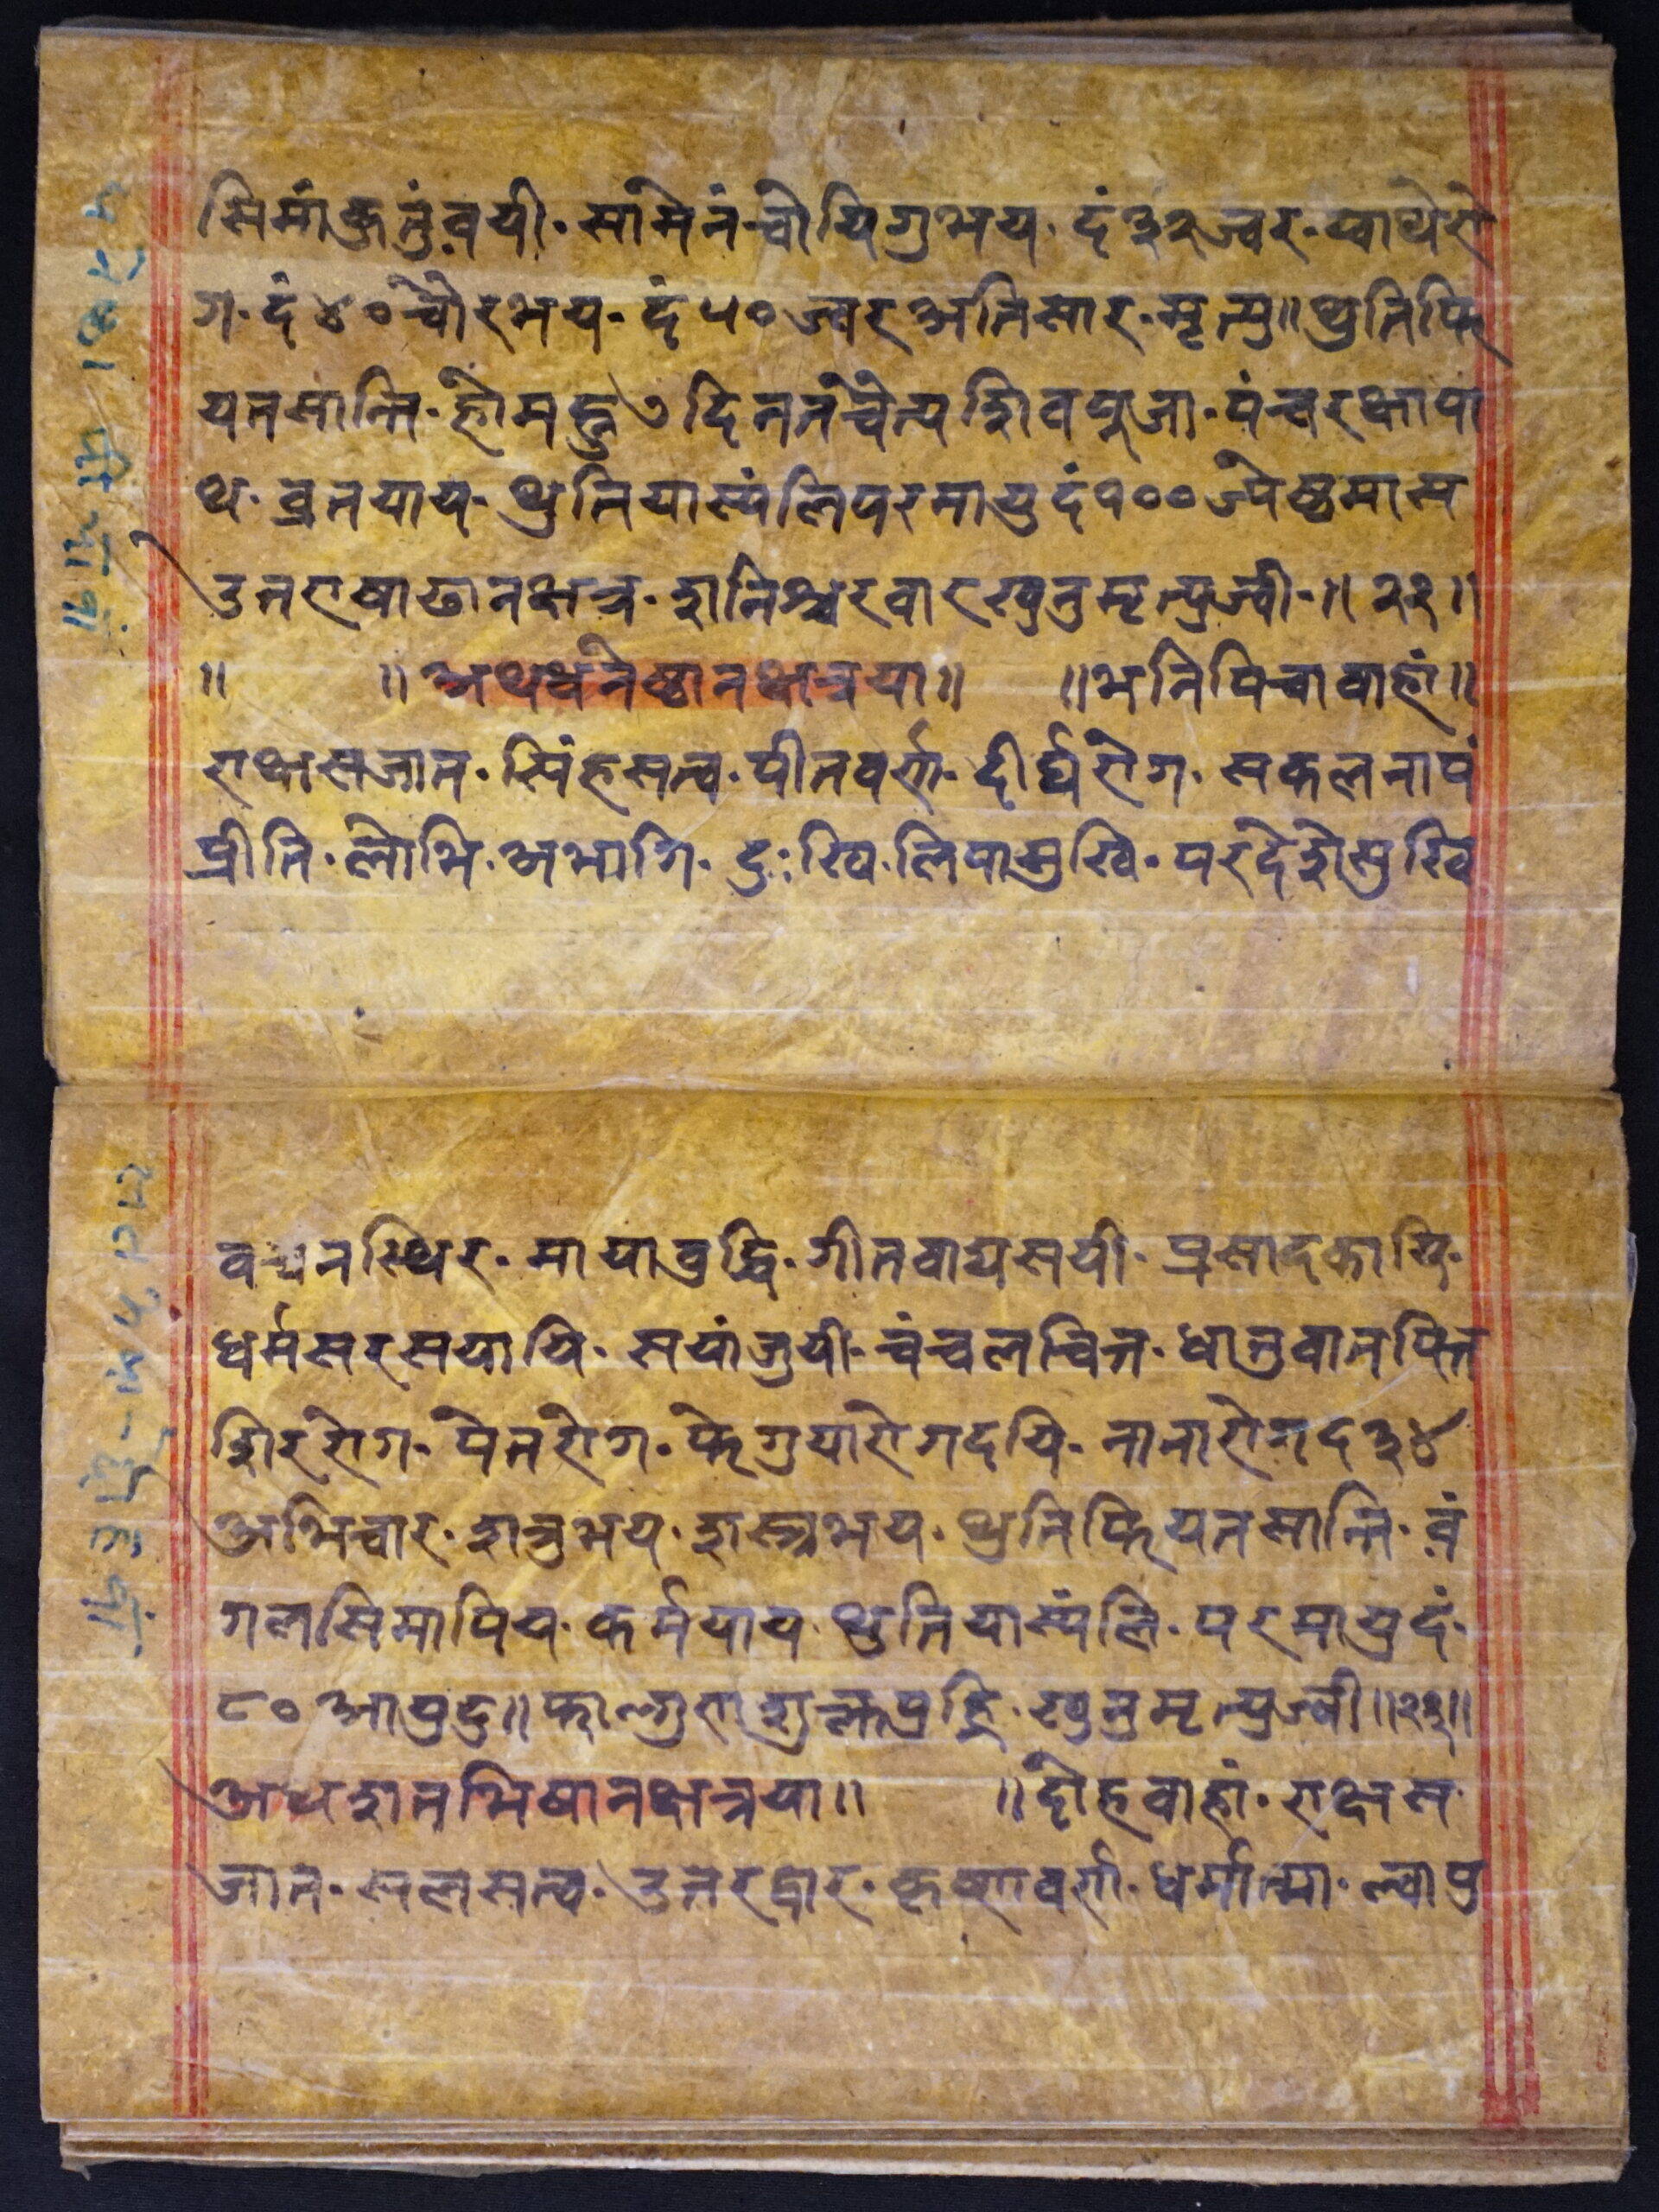 सिमां कुतुं वयी · सामेनं चोयिगु भय · दं ३२ ज्वर · प्वाथे रो
ग · दं ४० चौरभय · दं ५० ज्वर अतिसार · मृत्यु ॥ थुतिफि
यत सान्ति · होमछु ७ दिनतं चैत्य शिवपूजा · पंचरक्षा पा
थ · व्रतयाय · थुतियास्यंलि परमायु दं १०० ज्येष्ठमास
उतराषाढानक्षत्र · शनिश्चरवार खुनु मृत्युज्वी · ॥ २२ ॥
॥ ॥ अथ धनेष्ठानक्षत्रया ॥ ॥ भतिपिचा वाहां ॥
राक्षसजात · सिंहसत्व · पीतवर्ण · दीर्घरोग · सकलनापं
प्रीति · लोभि · अभागि · दुःखि · लिपा सुखि · परदेशे सुखि
वचन स्थिर · माया बुद्धि · गीतवाद्य सयी · प्रसादकायि ·
धर्मस रसयायि · सयांजुयी · चंचलचित्त · धातु वातपित्त
शिररोग · पेतरोग · फेगुया रोग दयि · नानारोग द ३४
अभिचार · शत्रुभय · शस्त्रभय · थुतिफियत सान्ति · वं
गलसिमा पिय · कर्मयाय · थुतियास्यंलि · परमायु दं ·
८० आयु दु ॥ फाल्गुण शुक्ल खुनु मृत्युज्वी ॥ २३ ॥
अथ शतभिषानक्षत्रया ॥ ॥ दोह वाहां · राक्षस
जात · सलसत्व · उतरद्वार · कृष्णवर्ण · धर्मात्मा · ल्वापु